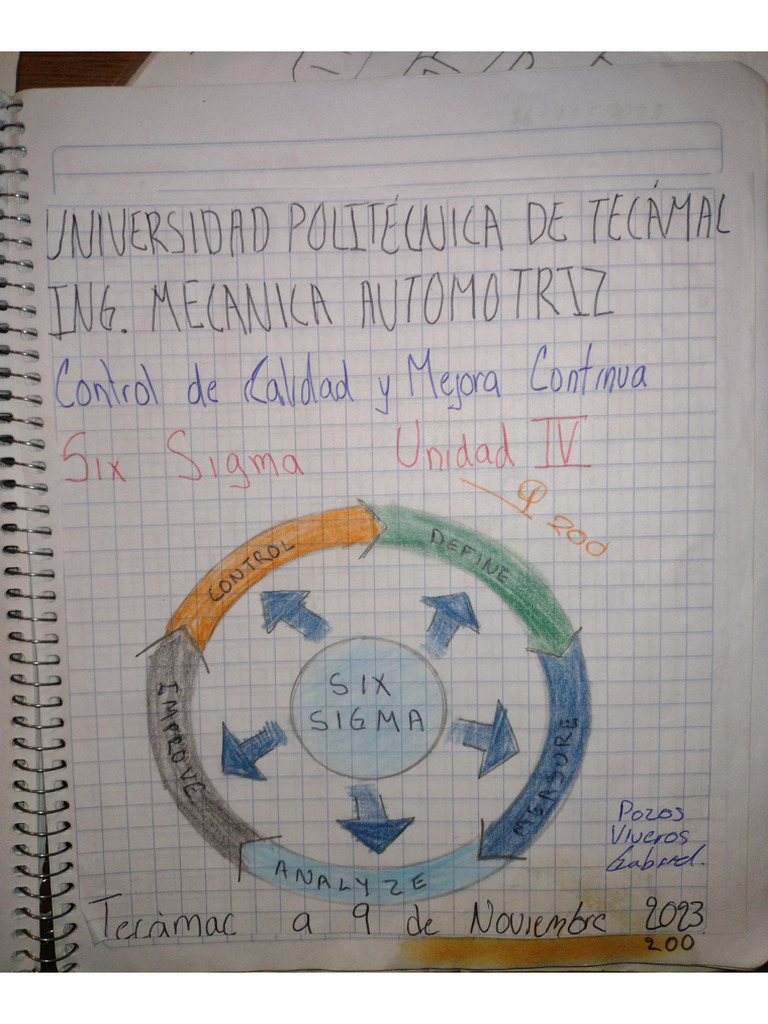 UNIVERSIDAD POLITÉCNICA DE TECÁMAC
ING. MECANICA AUTOMOTRIZ
Control de Calidad y Mejora Continua
Six Sigma Unidad IV
200
CONTROL
DEFINE
SIX
SIGMA
IMPROVE
MEASURE
ANALYZE
Pozos
Viveros
Gabriel.
Tecámac a 9 de Noviembre 2023
200